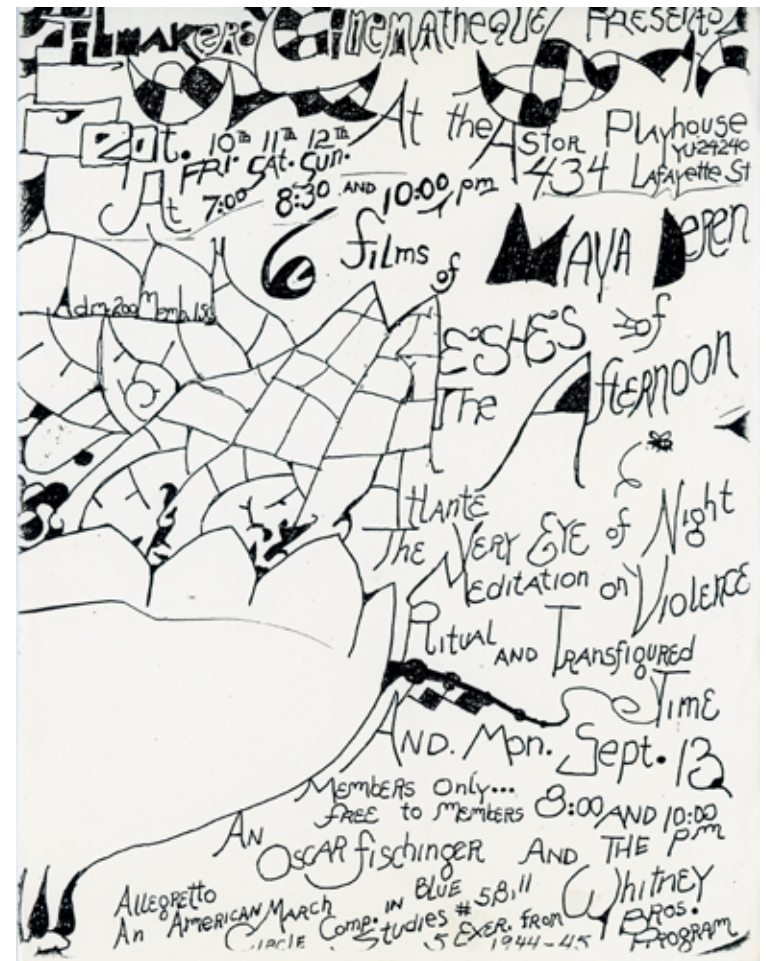 Filmakers Cinematheque Presents
At the Astor Playhouse
YU-24240
434 Lafayette St
Sept. 10th 11th 12th
FRI. SAT. SUN.
At 7:00 8:30 AND 10:00 pm
6 films of MAYA DEREN
Adm. 200 Memb. 1.50
MESHES of
The Afternoon
Atlante
The VERY EYE of Night
Meditation on Violence
Ritual AND Transfigured
Time
AND. Mon. Sept. 13
Members Only...
FREE to members 8:00 AND 10:00 pm
AN
OSCAR fischinger AND THE
Whitney
Bros.
Program
Allegretto
An American March
Circle Comp. IN BLUE
Studies # 5,8,11
5 EXER. from
1944-45